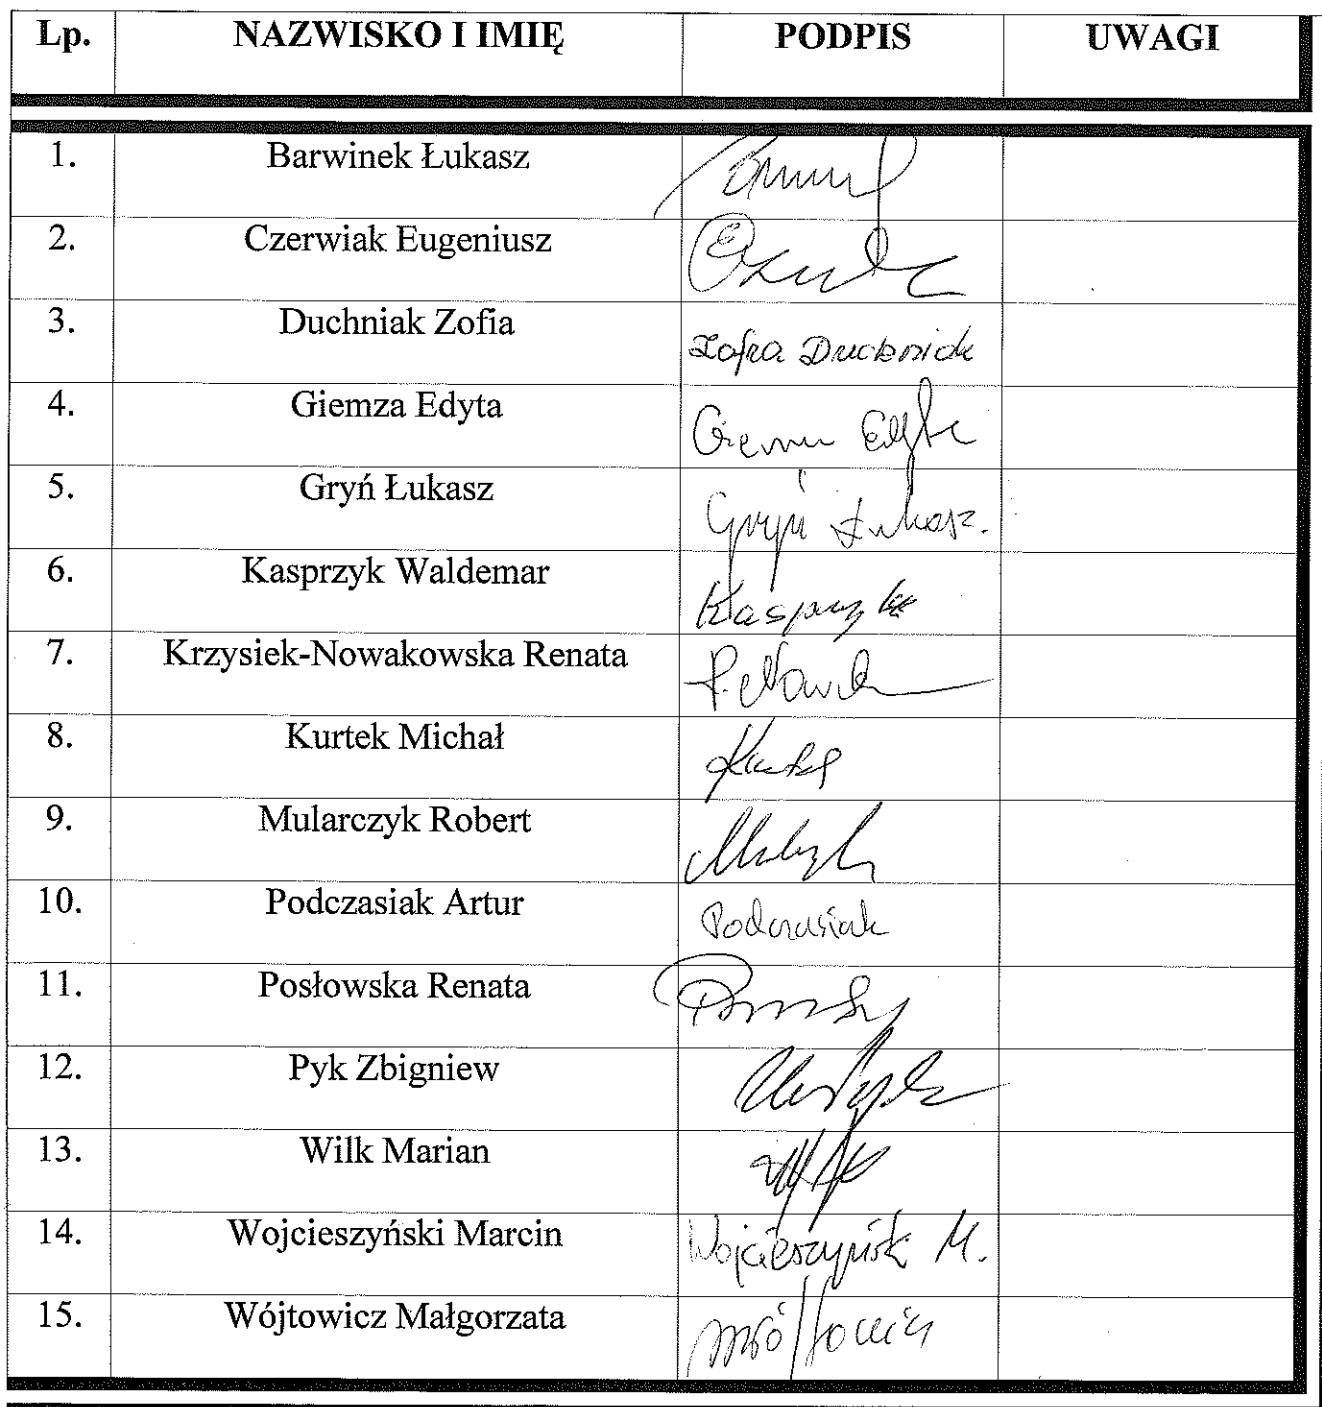 Lp. NAZWISKO I IMIĘ PODPIS UWAGI
1. Barwinek Łukasz
2. Czerwiak Eugeniusz
3. Duchniak Zofia Zofia Duchniak
4. Giemza Edyta Giemza Edyta
5. Gryń Łukasz Gryń Łukasz.
6. Kasprzyk Waldemar Kasprzyk
7. Krzysiek-Nowakowska Renata
8. Kurtek Michał
9. Mularczyk Robert
10. Podczasiak Artur Podczasiak
11. Posłowska Renata
12. Pyk Zbigniew
13. Wilk Marian
14. Wojcieszyński Marcin Wojcieszyński M.
15. Wójtowicz Małgorzata MWójtowicz